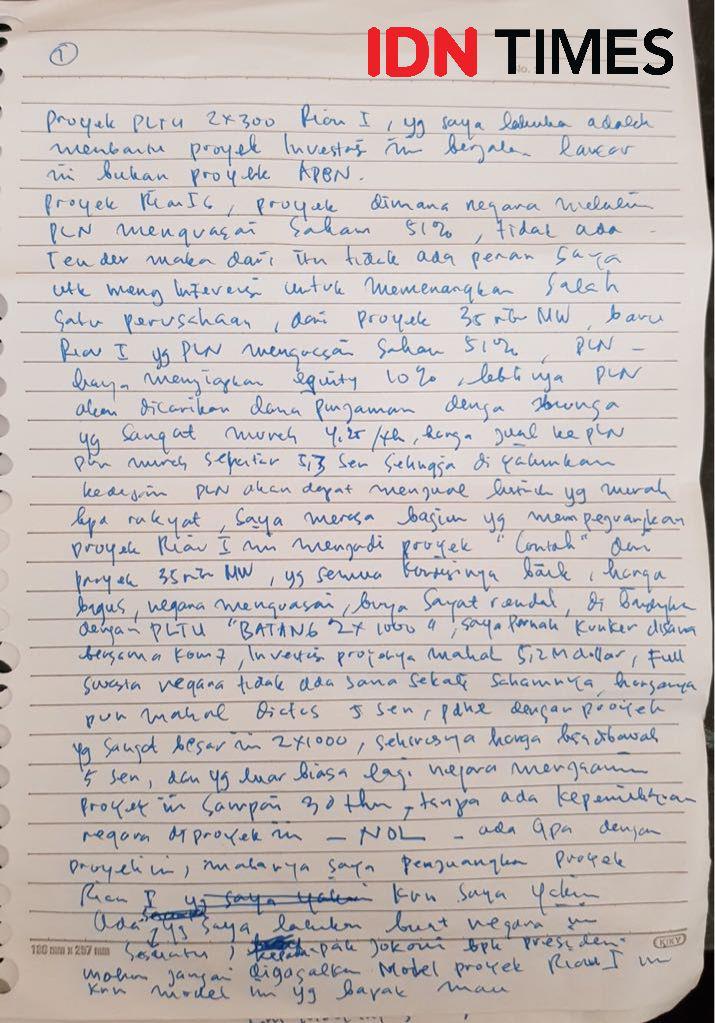 IDN TIMES
1
No.
Proyek PLTU 2x300 Riau I, yg saya lakukan adalah
membantu proyek Investasi ini berjalan lancar
ini bukan proyek APBN.
Proyek Riau I, proyek dimana negara melalui
PLN menguasai saham 51%, tidak ada
Tender maka dari itu tidak ada peran saya
utk mengIntervensi untuk memenangkan salah
satu perusahaan, dari proyek 35 ribu MW, baru
Riau I yg PLN menguasai saham 51%, PLN -
hanya menyiapkan equity 10%, lebihnya PLN
akan dicarikan dana pinjaman denga bunga
yg sangat murah 4,25/th, harga jual ke PLN
pun murah sekitar 5,3 sen sehingga di
kedepan PLN akan dapat menjual listrik yg murah
kpa rakyat, saya merasa bagian yg memperjuangkan
proyek Riau I ini menjadi proyek "Contoh" dari
proyek 35 ribu MW, yg semua kondisinya baik, harga
bagus, negara menguasai, bunga sangat rendah, di
dengan PLTU "BATANG 2x1000", saya pernah kunker disana
bersama Kom 7, Investasi proyeknya mahal 5,2 M dollar, Full
swasta negara tidak ada sama sekali sahamnya, harganya
pun mahal diatas 5 sen, pdhl dengan proyek
yg sangat besar ini 2x1000, seharusnya harga bisa dibawah
5 sen, dan yg luar biasa lagi negara menjamin
proyek ini sampai 30 thn, tanpa ada kepemilikan
negara di proyek ini - NOL - ada apa dengan
proyek ini, makanya saya perjuangkan proyek
Riau I yg saya yakin krn saya yakin
Ada sesuatu yg saya lakukan buat negara ini
pak Jokowi bpk presiden
mohon jangan digagalkan Model proyek Riau I ini
krn model ini yg bapak mau
186 mm x 297 mm
KIKY